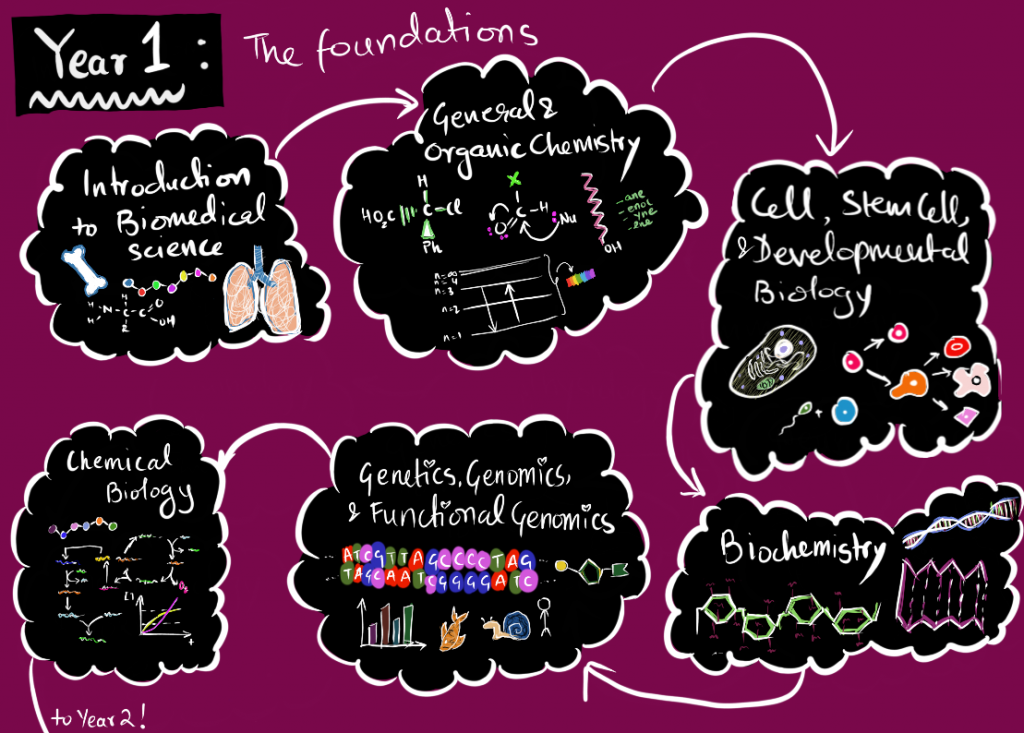 Year 1 : The foundations
Introduction
to Biomedical
science
H
N
H
H
C
Z
C
O
OH
General &
Organic Chemistry
H
HO₂C
C
Cl
Ph
X
C
H
O
Nu
OH
-ane
-enol
-yne
-ene
n=∞
n=4
n=3
n=2
n=1
Cell, Stem Cell,
& Developmental
Biology
+
Biochemistry
Genetics, Genomics,
& Functional Genomics
ATCGTTAGCCCCTAG
TAGCAATCGGGGATC
Chemical
Biology
[]
t
to Year 2!